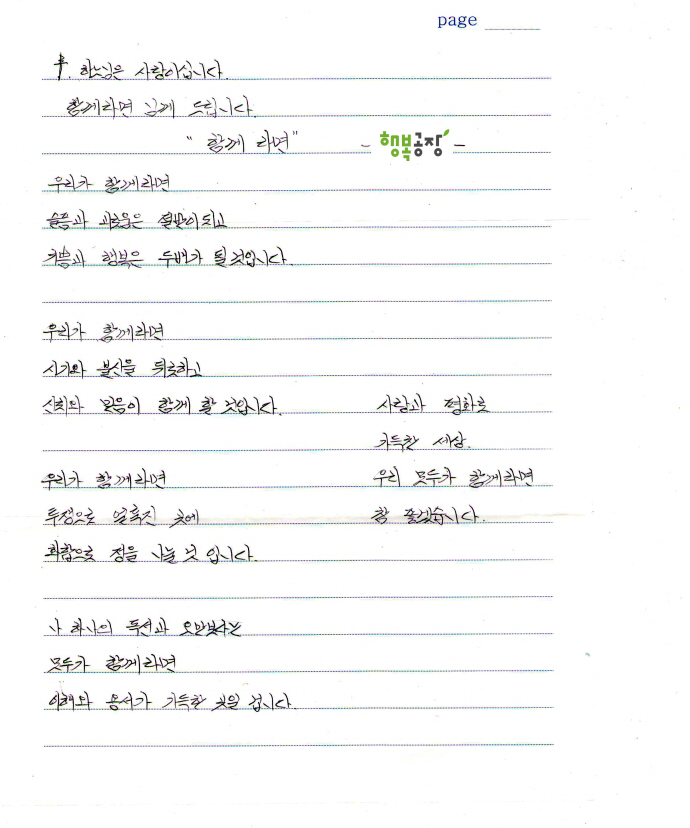 page
✝. 하느님은 사랑이십니다.
함께라면 님께 드립니다.
"함께 라면" - 행복공장 -
우리가 함께라면
슬픔과 괴로움은 절반이 되고
기쁨과 행복은 두배가 될 것입니다.
우리가 함께라면
시기와 불신을 뒤로하고
신뢰와 믿음이 함께 할 것입니다.
우리가 함께라면
투정으로 얼룩진 곳에
화합으로 정을 나눌 것 입니다.
나 하나의 독선과 오만보다는
모두가 함께라면
이해와 용서가 가득한 곳일 겁니다.
사랑과 평화로
가득한 세상.
우리 모두가 함께라면
참 좋겠습니다.